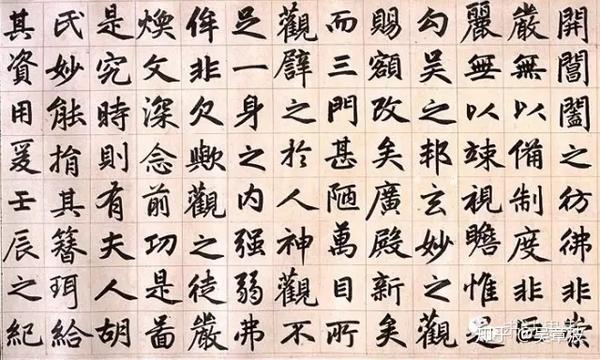 開閶闔之彷彿非崇
嚴無以備制度非
麗無以竦視瞻惟是
勾吳之邦玄妙之觀
賜額改矣廣殿新矣
而三門甚陋萬目所
觀譬之於人神觀不
足一身之内强弱弗
侔非欠歟觀之徒嚴
煥文深念前功是啚
是究時則有夫人胡
氏妙能捐其簪珥給
其資用爰壬辰之紀
知乎